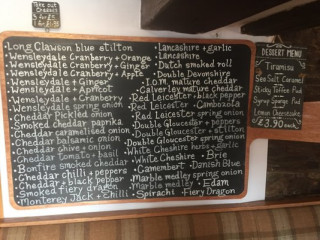 Take out
Long Clawson blue stilton
Wensleydale Cranberry + Orange
Wensleydale Cranberry + Ginger
Wensleydale Cranberry + Apple
Wensleydale + Ginger
Wensleydale + Apricot
Wensleydale + Cranberry
Wensleydale spring onion
Cheddar Pickled onion
Smoked cheddar paprika
Cheddar caramelised onion
Cheddar balsamic onion
Cheddar chive + onion
Cheddar tomato + basil
Bonfire smoked cheddar
Cheddar chilli + peppers
Cheddar + black pepper
Smoked fiery dragon
Monterey Jack + chilli
Lancashire + garlic
Lancashire
Dutch smoked roll
Double Devonshire
I.o.m. mature cheddar
Calverley mature cheddar
Red Leicester + black pepper
Red Leicester
Cambozola
Red Leicester spring onion
Double Gloucester + peppers
Double Gloucester + stilton
Double Gloucester spring onion
White Cheshire herbs + garlic
White Cheshire
Brie
Camembert
Danish Blue
Marble medley spring onion
Marble medley
Edam
Spirachi
Fiery Dragon
DESSERT MENU
Tiramisu
Sea Salt Caramel
Sticky Toffee Pud
Syrup Sponge Pud
Lemon Cheesecake
£3.90 each